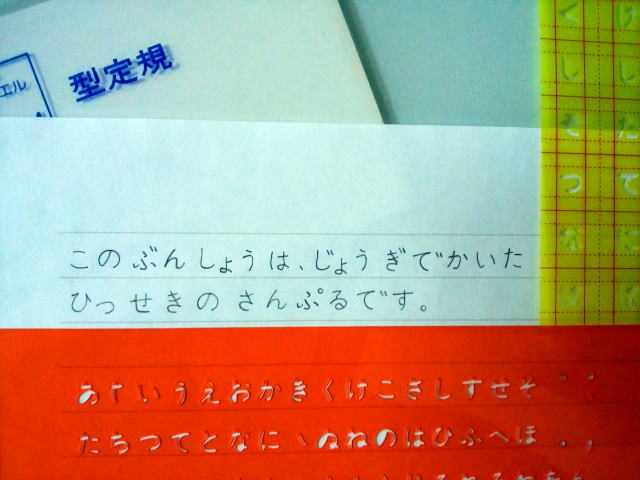 エル
型定規
このぶんしょうは、じょうぎでかいた
ひっせきのさんぷるです。
あいうえおかきくけこさしすせそ
たちつてとなに ぬねのはひふへほ
く け
し し
そ た
つ て